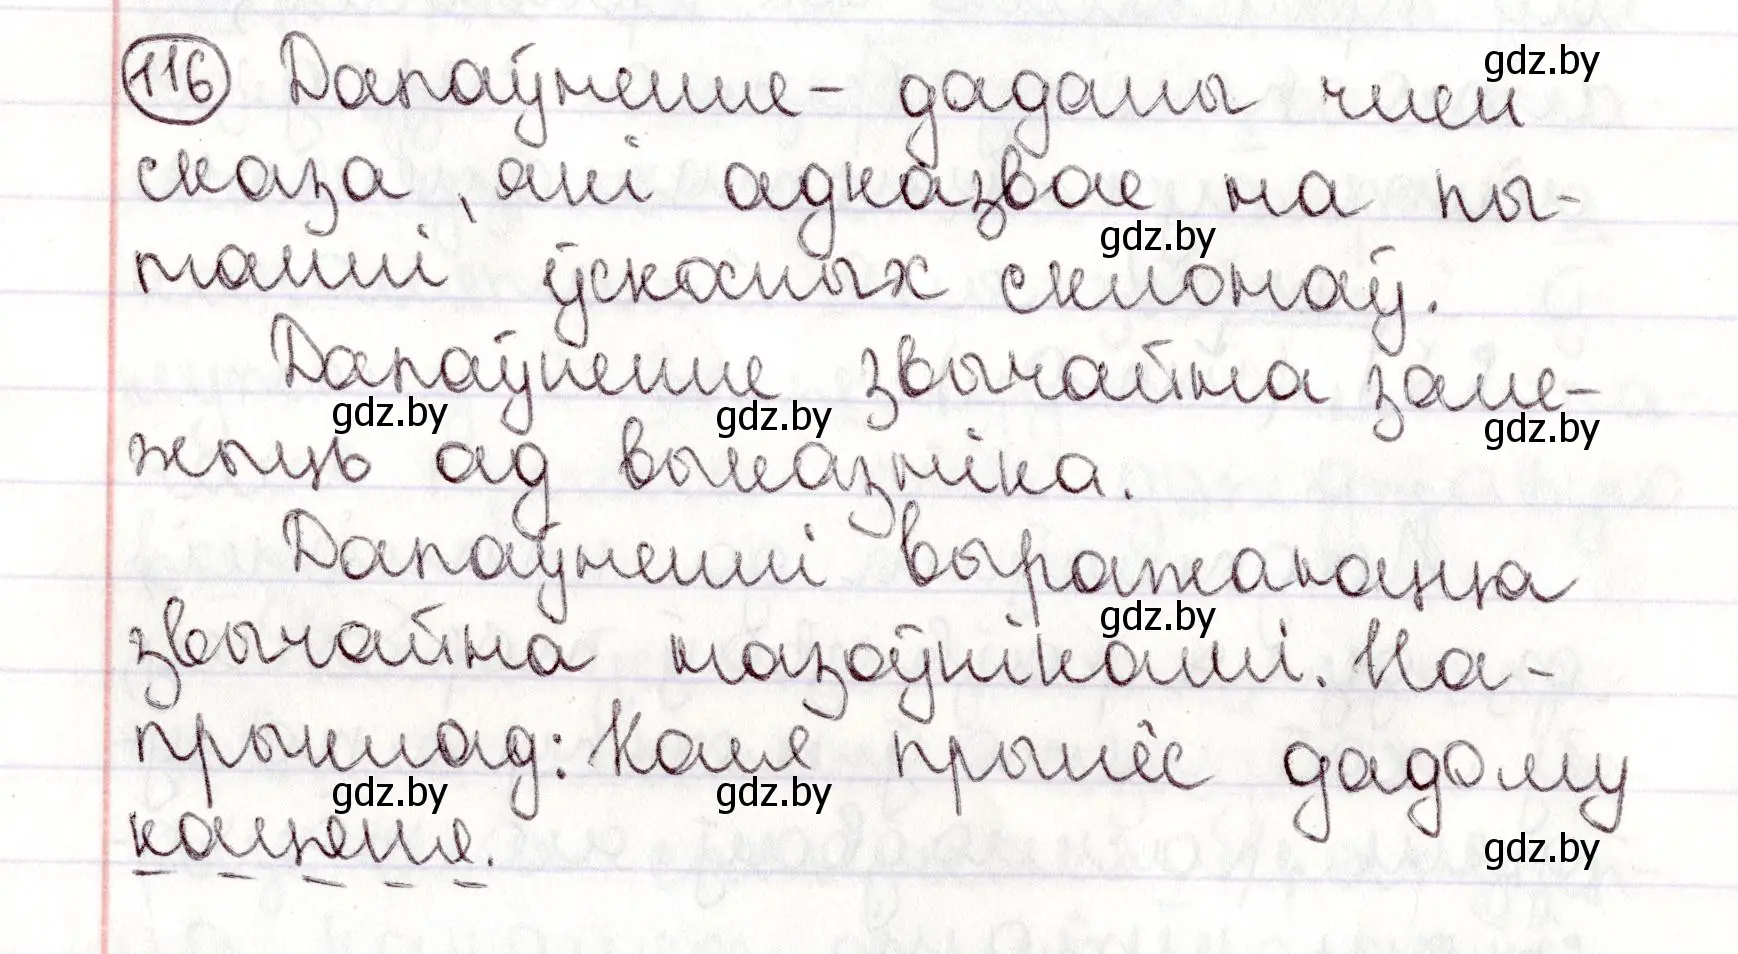 116 Дапаўненне - даданы член gdz.by
сказа, які адказвае на пы-
gdz.by
танні ўскосных склонаў.
Дапаўненне звычайна зале-
gdz.by gdz.by gdz.by
жыць ад выказніка.
Дапаўненні выражаюцца
gdz.by
звычайна назоўнікамі. На-
прыклад: Коля прынёс дадому
gdz.by gdz.by
кацяня. gdz.by